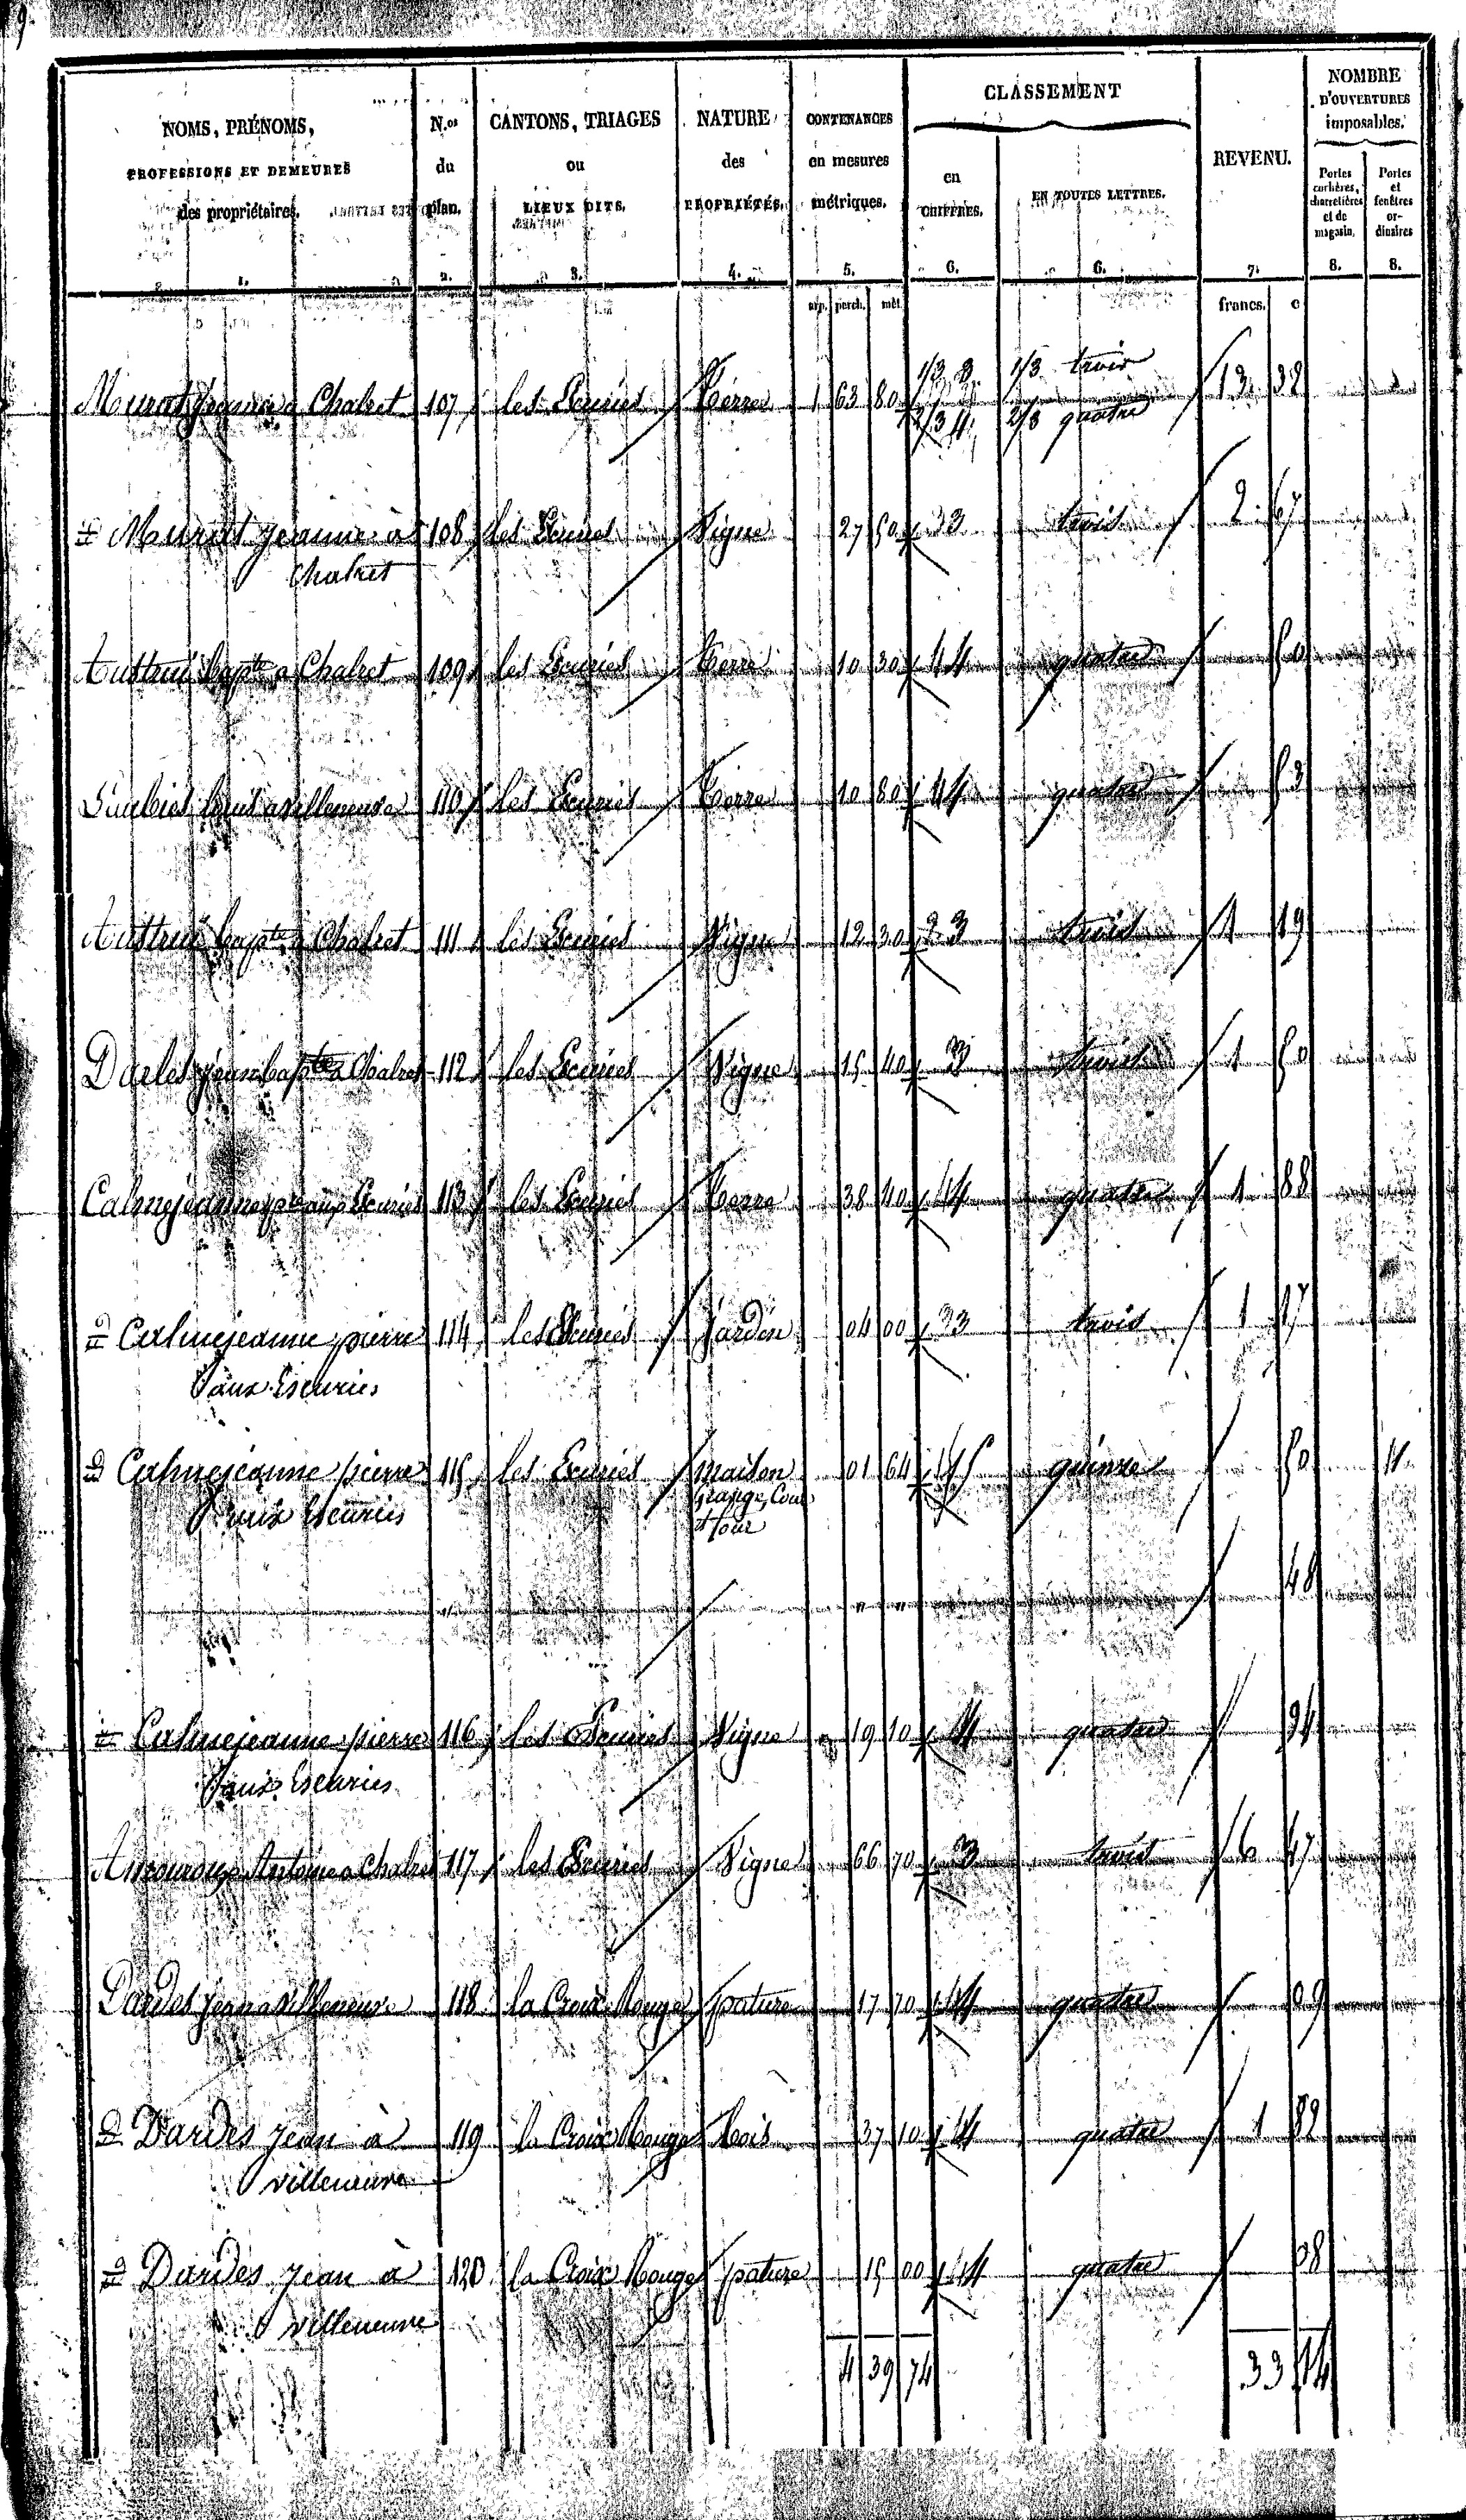 9
NOMS, PRÉNOMS,
PROFESSIONS ET DEMEURES
des propriétaires.
N.os
du
plan.
CANTONS, TRIAGES
ou
LIEUX DITS.
NATURE
des
PROPRIÉTÉS.
CONTENANCES
en mesures
métriques.
CLASSEMENT
en
CHIFFRES.
EN TOUTES LETTRES.
REVENU.
NOMBRE
D'OUVERTURES
imposables.
Portes
cochères,
charretières
et de
magasin.
Portes
et
fenêtres
or-
dinaires
1. 2. 3. 4. 5. 6. 6. 7. 8. 8.
arp. perch. mèt. francs. c
1/3 3 1/3 trois
Murat Chalret 107 les Ecuries Terre 1 63 80 13 38
2/3 4 2/3 quatre
Id Murat jeanne à 108 les Ecuries Vigne 27 50 3 trois 2 67
Chalret
bapte a Chalret 109 les Ecuries Terre 10 30 4 quatre 50
louis a villeneuve 110 les Ecuries Terre 10 80 4 quatre 53
bapte a Chalret 111 les Ecuries Vigne 12 30 3 trois 1 19
Darles jean bapte a Chalret 112 les Ecuries Vigne 15 40 3 trois 1 50
Calmejeanne pre aux Ecuries 113 les Ecuries Terre 38 40 4 quatre 1 88
Id Calmejeanne pierre 114 les Ecuries Jardin 04 00 3 trois 1 17
aux Escuries
Id Calmejeanne pierre 115 les Ecuries maison 01 64 15 quinze 50
aux Escuries Grange, Cour
et four
" " " 48
Id Calmejeanne pierre 116 les Ecuries Vigne 19 10 4 quatre 94
aux Escuries
Amouroux Antoine a Chalret 117 les Ecuries Vigne 66 70 3 trois 6 47
Dardes jean a Villeneuve 118 la Croix Rouge pature 17 70 4 quatre 09
Id Dardes jean à 119 la Croix Rouge Bois 37 10 4 quatre 1 82
villeneuve
Id Dardes jean à 120 la Croix Rouge pature 15 00 4 quatre 08
villeneuve
4 39 74 33 14